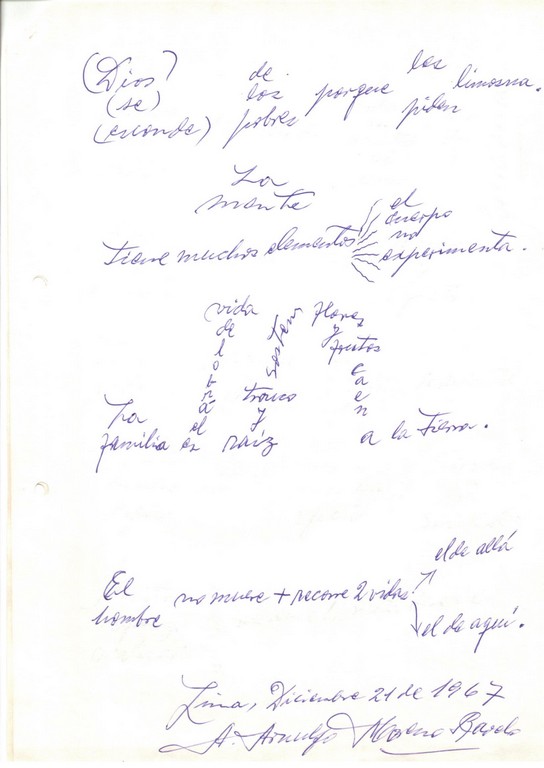 (Dios) de los
(se) los porque limosna.
(esconde) pobres piden
La
mente el
cuerpo
Tiene muchos elementos no
experimenta.
vida sosten flores
de y
frutos
árbol tronco caen
La el y
familia es raíz a la Tierra.
el de allá
El
hombre no muere + recorre 2 vidas
el de aquí.
Lima, Diciembre 21 de 1967
A. Arnulfo Moreno